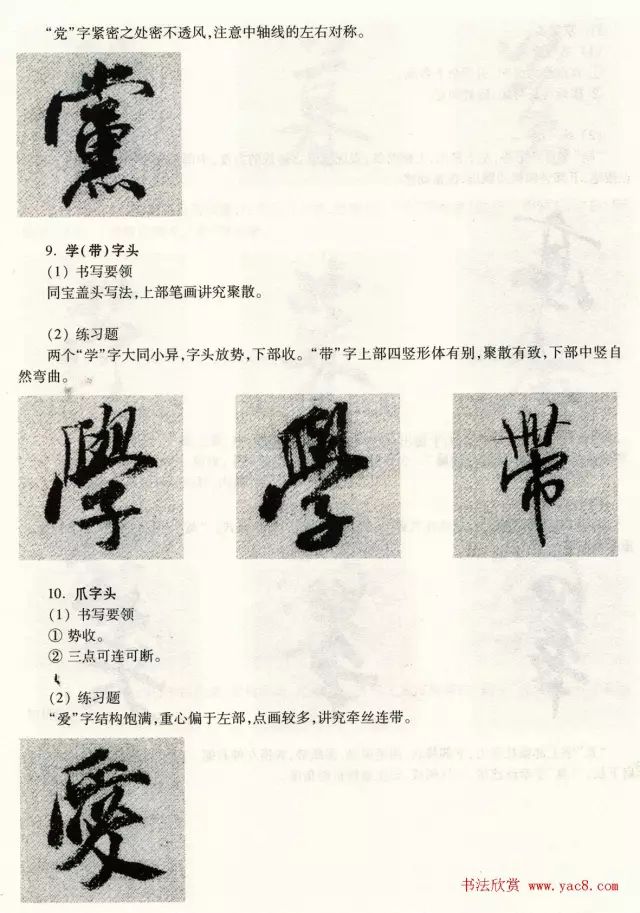 “党”字紧密之处密不透风,注意中轴线的左右对称。
黨
9. 学(带)字头
(1) 书写要领
同宝盖头写法,上部笔画讲究聚散。
(2) 练习题
两个“学”字大同小异,字头放势,下部收。“带”字上部四竖形体有别,聚散有致,下部中竖自
然弯曲。
學 學 帶
10. 爪字头
(1) 书写要领
① 势收。
② 三点可连可断。
(2) 练习题
“爱”字结构饱满,重心偏于左部,点画较多,讲究牵丝连带。
愛
书法欣赏 www.yac8.com